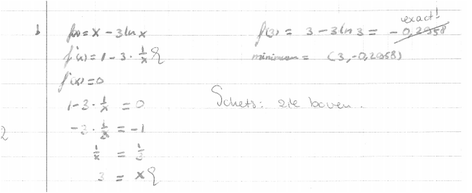 b f(x) = x - 3 ln x
f'(x) = 1 - 3 · 1/x
f'(x) = 0
1 - 3 · 1/x = 0
-3 · 1/x = -1
1/x = 1/3
3 = x
2
exact!
f(3) = 3 - 3 ln 3 = -0,2958
minimum = (3, -0,2958)
Schets: zie boven.